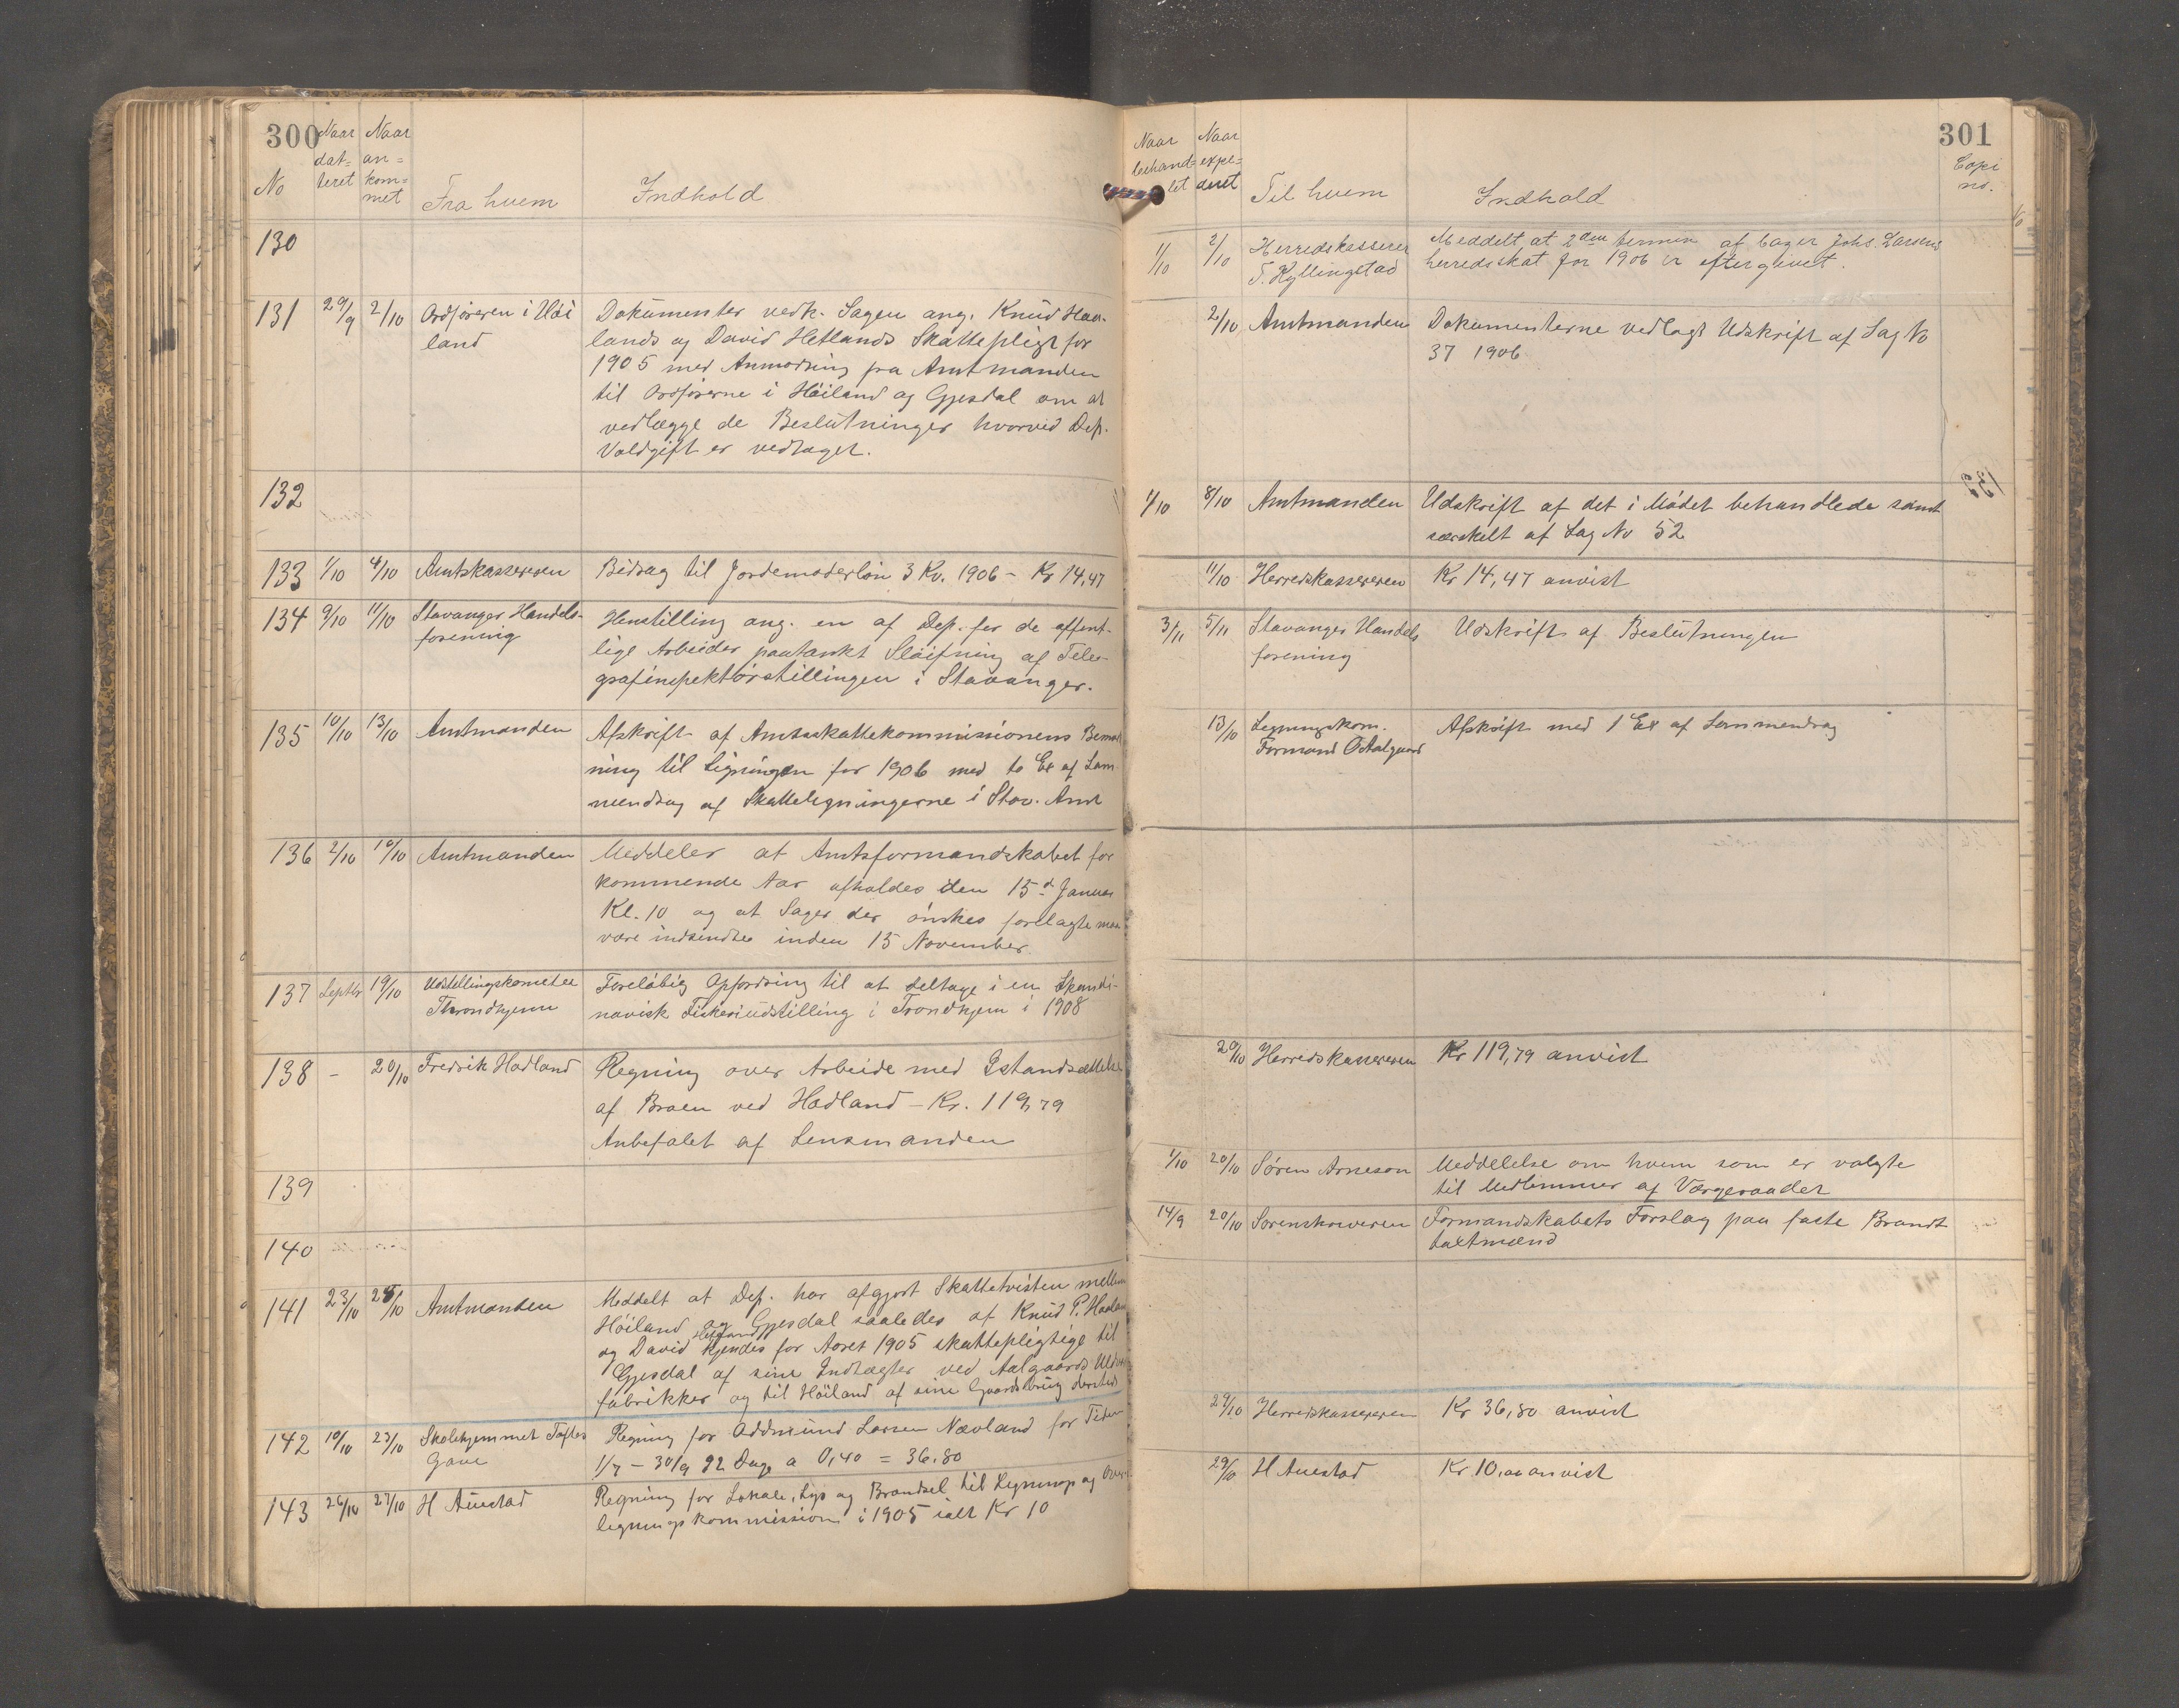 300
Naar Naar
dat= an=
No teret kom=
met
Fra hvem Indhold
130
131 29/9 2/10 Ordføreren i Høi
land
Dokumenter vedk. Sagen ang. Knud Haa-
lands og David Hetlands Skattepligt for
1905 med Anmodning fra Amtmanden
til Ordførerne i Høiland og Gjesdal om at
vedlægge de Beslutninger hvorved Dep.
Voldgift er vedtaget.
132
133 1/10 4/10 Amtskassereren Bidrag til Jordemoderløn 3 Kv. 1906 - Kr 14,47
134 9/10 11/10 Stavanger Handels-
forening
Henstilling ang. en af Dep. for de offent-
lige Arbeider paatænkt Sløifning af Tele-
grafinspektørstillingen i Stavanger.
135 10/10 13/10 Amtmanden Afskrift af Amtsskattekommissionens Bemærk
ning til Ligningen for 1906 med to Ex af Sam
mendrag af Skatteligningerne i Stav. Amt
136 2/10 10/10 Amtmanden Meddeler at Amtsformandskabet for
kommende Aar afholdes den 15d Januar
Kl. 10 og at Sager der ønskes forelagte maa
være indsendte inden 15 November.
137 Septbr 19/10 Udstillingskomiteen
Throndhjem
Foreløbig Opfordring til at deltage i en Skandi-
navisk Fiskeriudstilling i Trondhjem i 1908
138 - 20/10 Fredrik Hadland Regning over Arbeide med Istandsættelse
af Broen ved Hadland - Kr. 119,79
Anbefalet af Lensmanden
139
140
141 23/10 25/10 Amtmanden Meddelt at Dep. har afgjort Skattetvisten mellem
Høiland og Gjesdal saaledes at Knud P. Haaland
og David Hetland kjendes for Aaret 1905 skattepligtige til
Gjesdal af sine Indtægter ved Aalgaards Uldvare
fabrikker og til Høiland af sine Gaardsbrug dersteds
142 19/10 23/10 Skolehjemmet Toftes
Gave
Regning for Oddmund Larsen Nævland for Tiden
1/7 - 30/9 92 Dage a 0,40 = 36.80
143 26/10 27/10 H Auestad Regning for Lokale, Lys og Brændsel til Lignings og Over-
ligningskommission i 1905 ialt Kr 10
301
Naar Naar
behand= expe=
let deret
Til hvem Indhold
Copi
no.
1/10 2/10 Herredskasserer
T. Kyllingstad
Meddelt at 2den termin af bager Johs. Larsens
herredsskat for 1906 er eftergivet.
2/10 Amtmanden Dokumenterne vedlagt Udskrift af Sag No
37 1906
1/10 8/10 Amtmanden Udskrift af det i Mødet behandlede samt
særskilt af Sag No 52
11/10 Herredskassereren Kr 14,47 anvist
3/11 5/11 Stavanger Handels
forening
Udskrift af Beslutningen
13/10 Ligningskom.
Formand Østalgaard
Afskrift med 1 Ex af Sammendrag
20/10 Herredskassereren Kr 119,79 anvist
1/10 20/10 Søren Arneson Meddelelse om hvem som er valgte
til Medlemmer af Værgeraadet
14/9 20/10 Sorenskriveren Formandskabets Forslag paa faste Brandt
taxtmænd
29/10 Herredskassereren Kr 36,80 anvist
29/10 H Auestad Kr 10,00 anvist